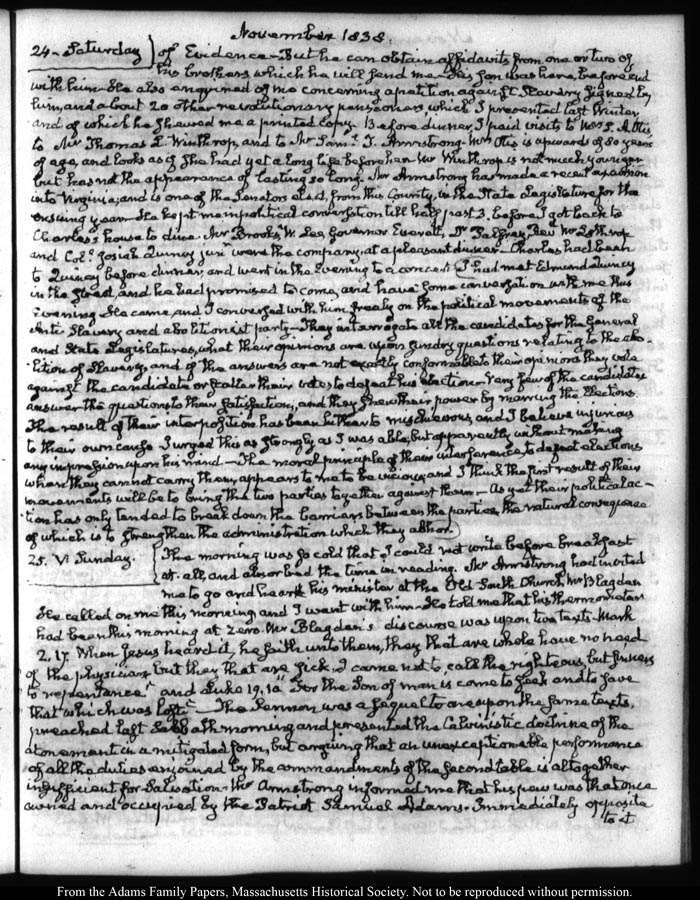 November 1838.
24. Saturday} of Evidence—But he can obtain affidavits from one or two of
his brothers which he will send me—His son was here, before and
with him—He also enquired of me concerning a petition against Slavery signed by
him, and about 20 other revolutionary pensioners, which I presented last Winter
and of which he shewed me a printed Copy. Before dinner, I paid visits to Mrs.
to Mr Thomas L. Winthrop, and to Mr Saml. T. Armstrong. Mrs Otis is upwards of 80 years
of age, and looks as if she had yet a long life before her. Mr Winthrop is not much younger
but has not the appearance of lasting so long. Mr Armstrong has made a recent excursion
into Virginia, and is one of the Senators elect, from this County, in the State Legislature for the
ensuing year—He kept me in political conversation till half past 3, before I got back to
Charles's house to dine. Mr Brooks, W. Lee, Governor Everett, Dr Palfrey, Revd. Mr Lothrop
and Col. Josiah Quincy junr. were the company, at a pleasant dinner. Charles had been
to Quincy before dinner, and went in the Evening to a concert. I had met Edmund Quincy
in the Street, and he had promised to come, and have some conversation with me this
Evening. He came, and I conversed with him freely on the political movements of the
Anti Slavery and abolitionist party—They interrogate all the candidates for the General
and State Legislatures, what their opinions are upon sundry questions relating to the abo-
lition of Slavery, and if the answers are not exactly conformable to their opinions they vote
against the candidate or scatter their votes to defeat his election. Very few of the candidates
answer the questions to their satisfaction, and they shew their power by marring the Elections.
The result of their interposition has been hitherto mischievous, and I believe injurious
to their own cause. I urged this as strongly as I was able, but apparently without making
any impression upon his mind—The moral principle of their interference to defeat elections
when they cannot carry them, appears to me to be vicious; and I think the first result of their
movements will be to bring the two parties together against them—As yet their political ac-
tion has only tended to break down the barriers between the parties, the natural consequence
of which is to strengthen the administration which they abhor.
25. V. Sunday. {The morning was so cold that I could not write before breakfast
at all, and absorbed the time in reading. Mr Armstrong had invited
me to go and hear his minister at the Old South Church, Mr Blagden
He called on me this morning and I went with him—He told me that his thermometer
had been this morning at Zero. Mr Blagden's discourse was upon two texts. Mark
2. 17. When Jesus heard it, he saith unto them, they that are whole have no need
of the physician, but they that are sick. I came not to call the righteous, but sinners
to repentance" and Luke 19. 10 "For the Son of man is come to seek and to save
that which was lost."—The Sermon was a sequel to one upon the same texts,
preached last Sabbath morning and presented the Calvinistic doctrine of the
atonement in a mitigated form, but arguing that an unexceptionable performance
of all the duties enjoined by the commandments of the second table is altogether
insufficient for Salvation—Mr Armstrong informed me that his pew was that once
owned and occupied by the Patriot Samuel Adams. Immediately opposite
to it
From the Adams Family Papers, Massachusetts Historical Society. Not to be reproduced without permission.